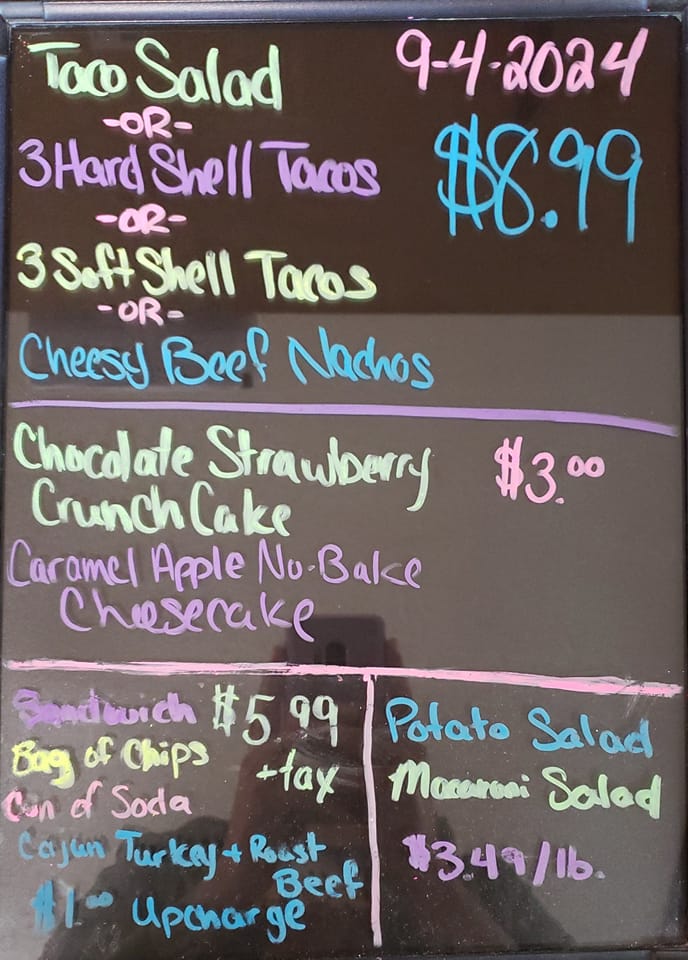 Taco Salad
9-4-2024
-OR-
$8.99
3 Hard Shell Tacos
-OR-
3 Soft Shell Tacos
-OR-
Cheesy Beef Nachos
Chocolate Strawberry
$3.00
Crunch Cake
Caramel Apple No-Bake
Cheesecake
Sandwich $5.99
Bag of Chips
+tax
Can of Soda
Cajun Turkey + Roast
Beef
$1.00 Upcharge
Potato Salad
Macaroni Salad
$3.49/lb.